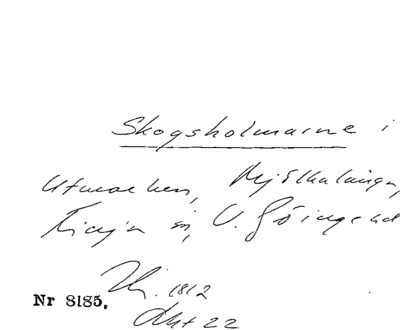 Skogsholmarne i
Utmarken, Mjölkalånga,
Finja sn, V. Göinge hd
Hi. 1812
Akt 22
Nr 8185.